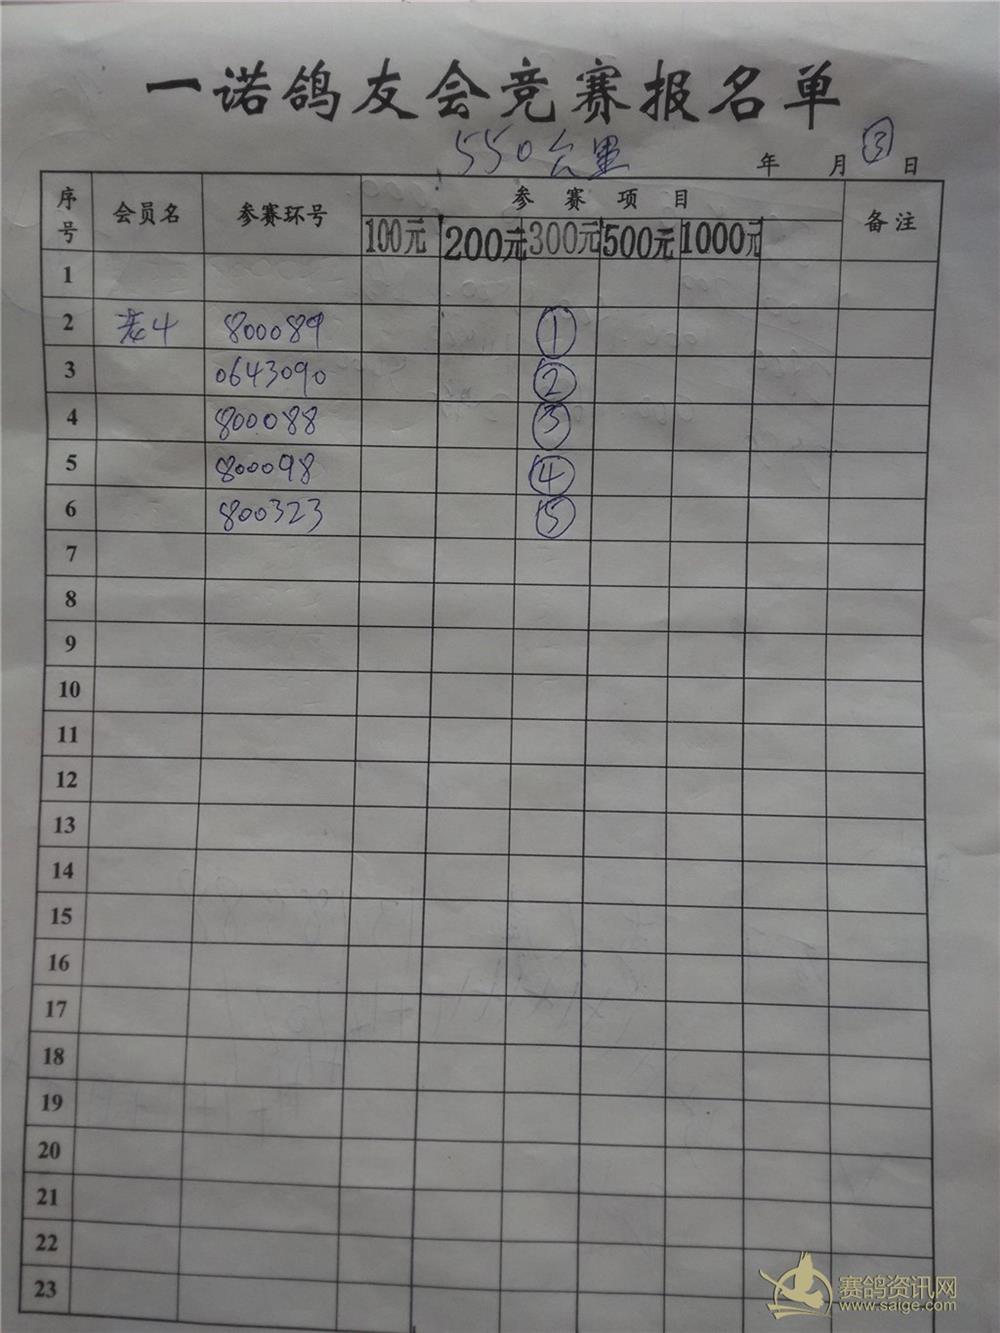 一诺鸽友会竞赛报名单
550公里 年 月 ③ 日
序号 会员名 参赛环号 参赛项目 备注
100元 200元 300元 500元 1000元
1
2 800089 ①
3 0643090 ②
4 800088 ③
5 800098 ④
6 800323 ⑤
7
8
9
10
11
12
13
14
15
16
17
18
19
20
21
22
23
赛鸽资讯网
www.saige.com